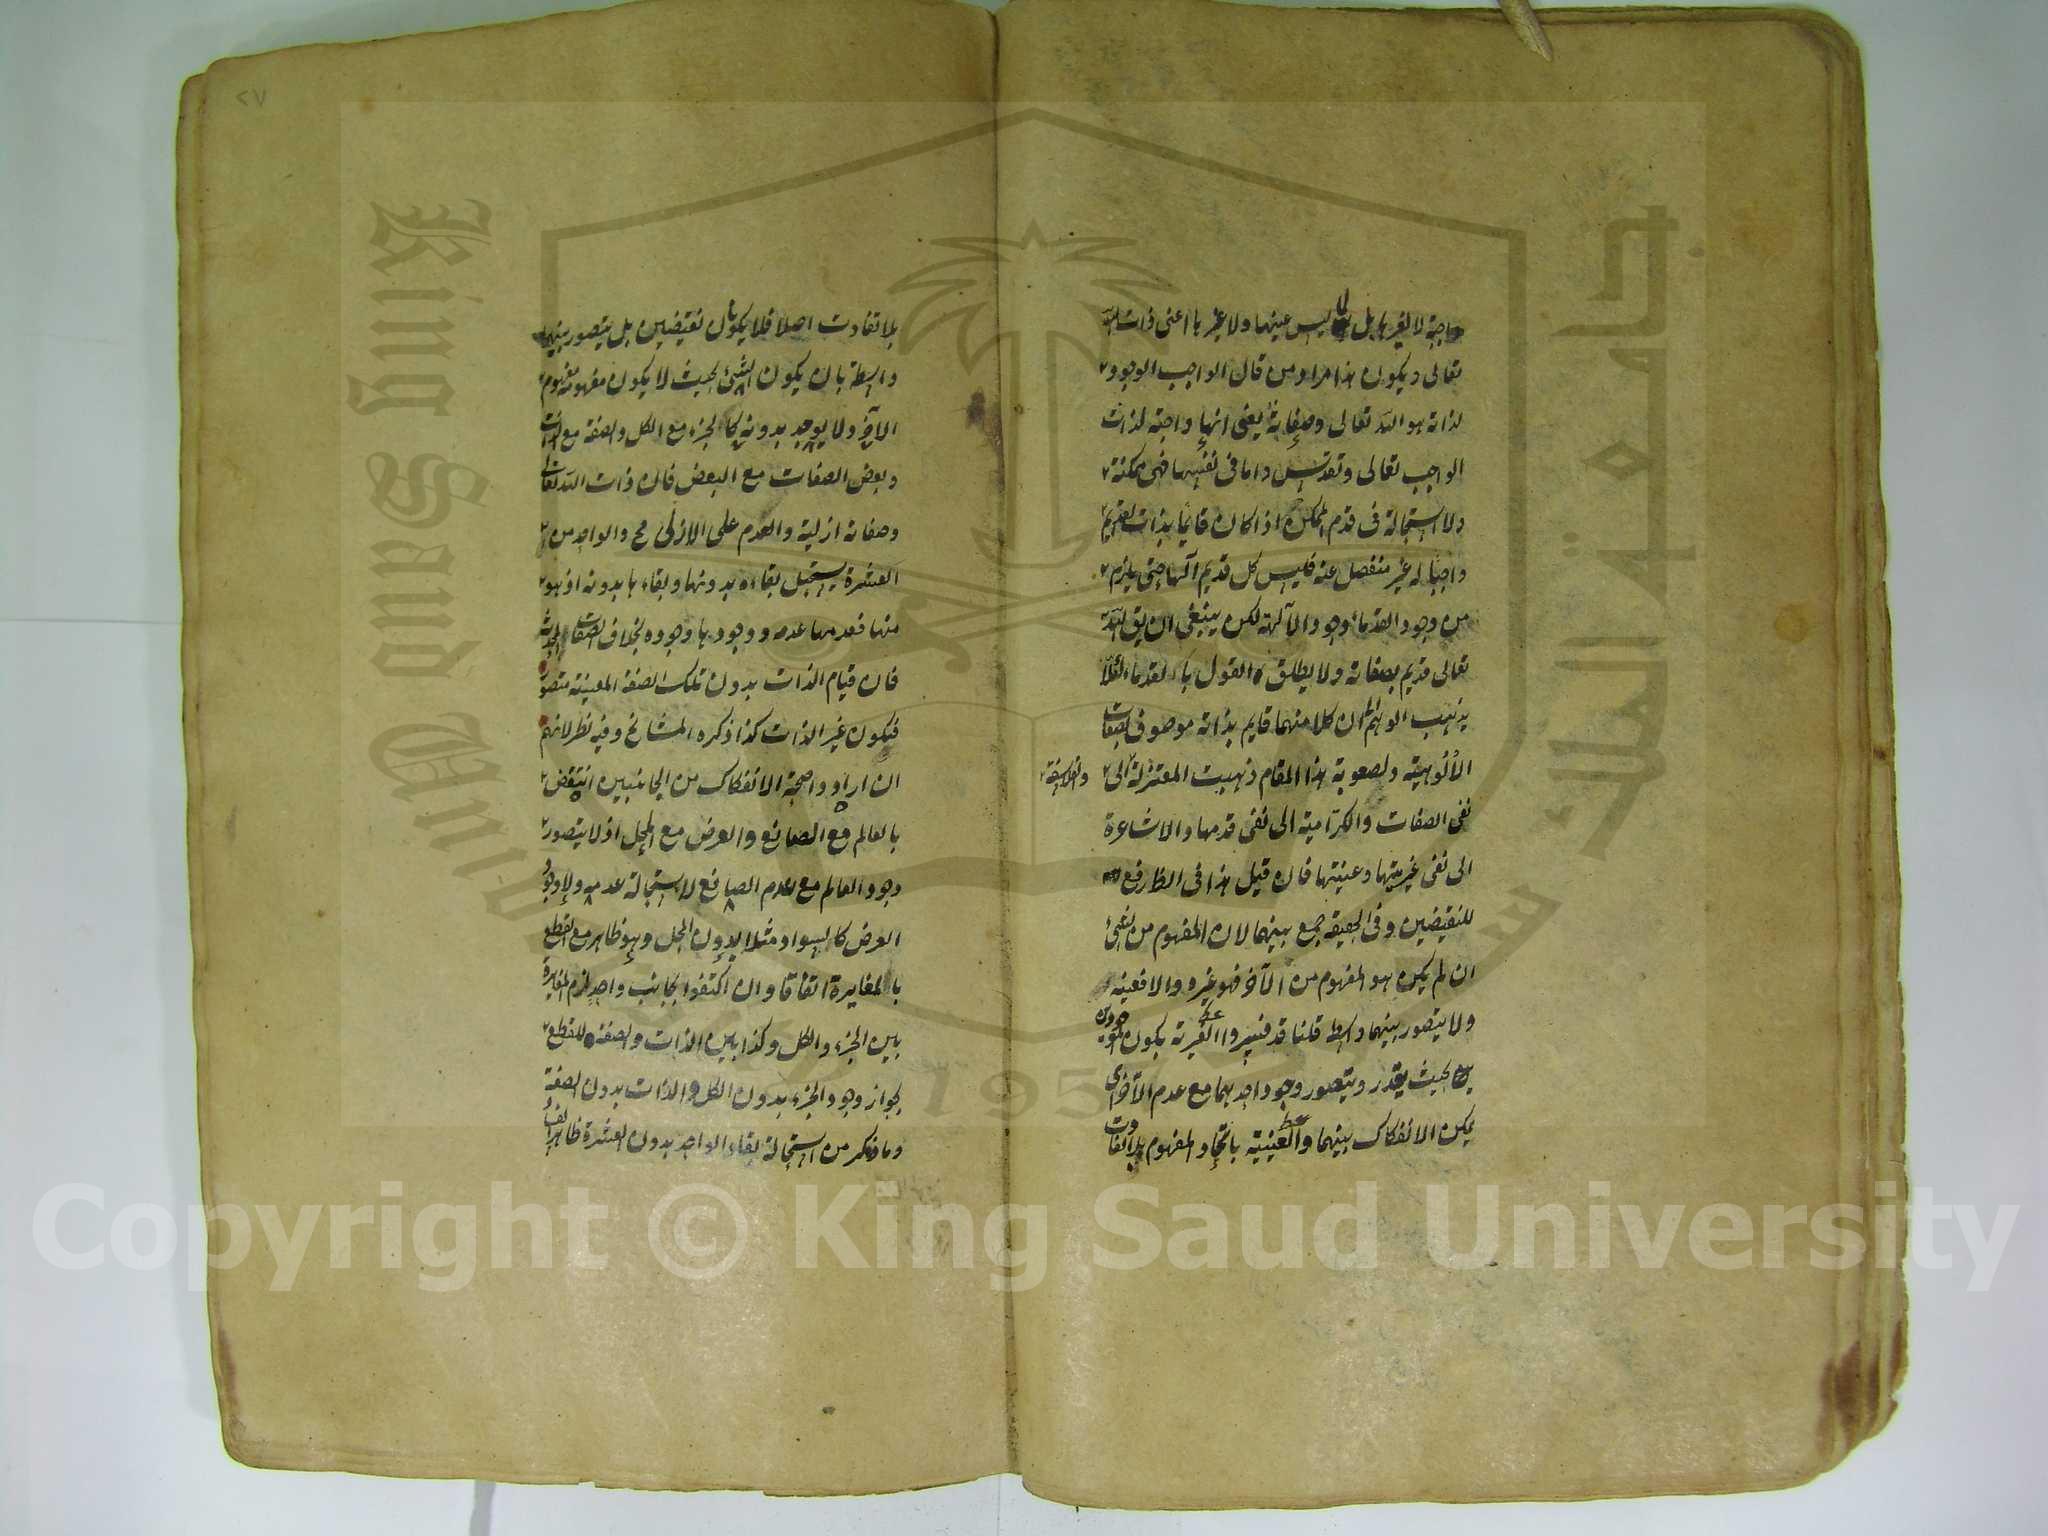 واجبة لا لغيرها بل لما ليس عينها ولا غيرها اعنى ذات الله
تعالى ويكون هذا مراد من قال الواجب الوجود
لذاته هو الله تعالى وصفاته يعنى انها واجبة لذات
الواجب تعالى وتقدس واما فى نفسها فهى ممكنة
ولا استحالة فى قدم الممكن اذا كان قائما بذات القديم
واجبا له غير منفصل عنه فليس كل قديم آلها حتى يلزم
من وجود القدماء وجود الآلهة لكن ينبغى ان يق الله
تعالى قديم بصفاته ولا يطلق القول بالقدماء لئلا
يذهب الوهم الى ان كلا منهما قايم بذاته موصوف بصفات
الألوهية ولصعوبة هذا المقام ذهبت المعتزلة الى
والفلاسفة
نفى الصفات والكرامية الى نفى قدمها والاشاعرة
الى نفى غيريتها وعينتها فان قيل هذا فى الظ رفع
للنقيضين وفى الحقيقة جمع بينهما لان المفهوم من الشئ
ان لم يكن هو المفهوم من الآخر فهو غيره والا فعينه
ولا يتصور بينهما واسطة قلنا قد فسروا الغيرية بكون الموجودين
بحيث يقدر ويتصور وجود احدهما مع عدم الآخر اى
يمكن الانفكاك بينهما والعينية باتحاد المفهوم بلا تفاوت
٢٧
بلا تفاوت اصلا فلا يكونان نقيضين بل يتصور بينهما
واسطة بان يكون الشئ بحيث لا يكون مفهومه مفهوم
الآخر ولا يوجد بدونه كالجزء مع الكل والصفة مع الذات
وبعض الصفات مع البعض فان ذات الله تعالى
وصفاته ازلية والعدم على الازلى مح والواحد من
العشرة يستحيل بقاءه بدونها وبقاءها بدونه اذ هو
منها فعدمها عدمه ووجودها وجوده بخلاف الصفات المحدثة
فان قيام الذات بدون تلك الصفة المعينة متصور
فيكون غير الذات كذا ذكره المشائخ وفيه نظر لانهم
ان ارادوا صحة الانفكاك من الجانبين انتقض
بالعالم مع الصانع والعرض مع المحل اذ لا يتصور
وجود العالم مع عدم الصانع لاستحالة عدمه ولا وجود
العرض كالسواد مثلا بدون المحل وهو ظاهر مع القطع
بالمغايرة اتفاقا وان اكتفوا بجانب واحد لزم المغايرة
بين الجزء والكل وكذا بين الذات والصفة للقطع
بجواز وجود الجزء بدون الكل والذات بدون الصفة
وما ذكر من استحالة بقاء الواحد بدون العشرة ظاهر الفساد